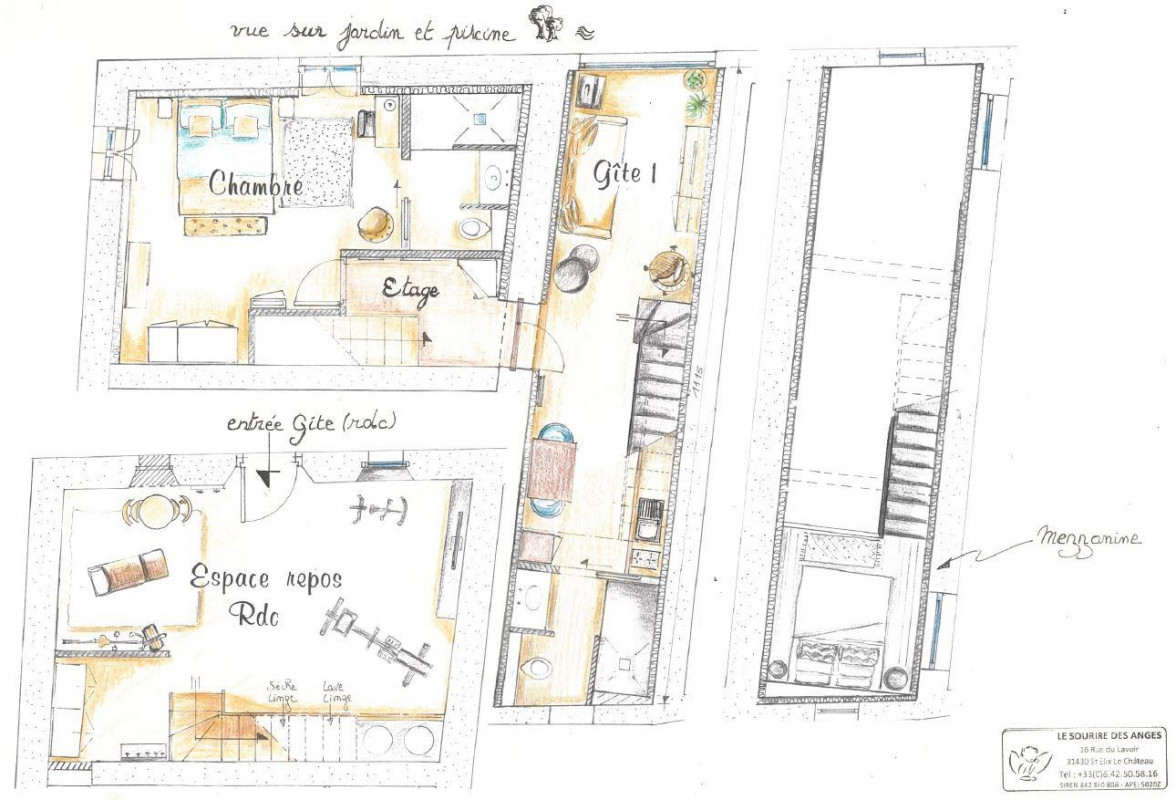 vue sur jardin et piscine
Chambre
Gîte 1
Etage
1115
entrée Gîte (rdc)
Mezzanine
Espace repos
Rdc
Sèche
Linge
Lave
Linge
LE SOURIRE DES ANGES
16 Rue du Lavoir
31430 St Elix Le Château
Tel : +33(0)6.42.50.58.16
SIREN 842 810 808 - APE: 5020Z